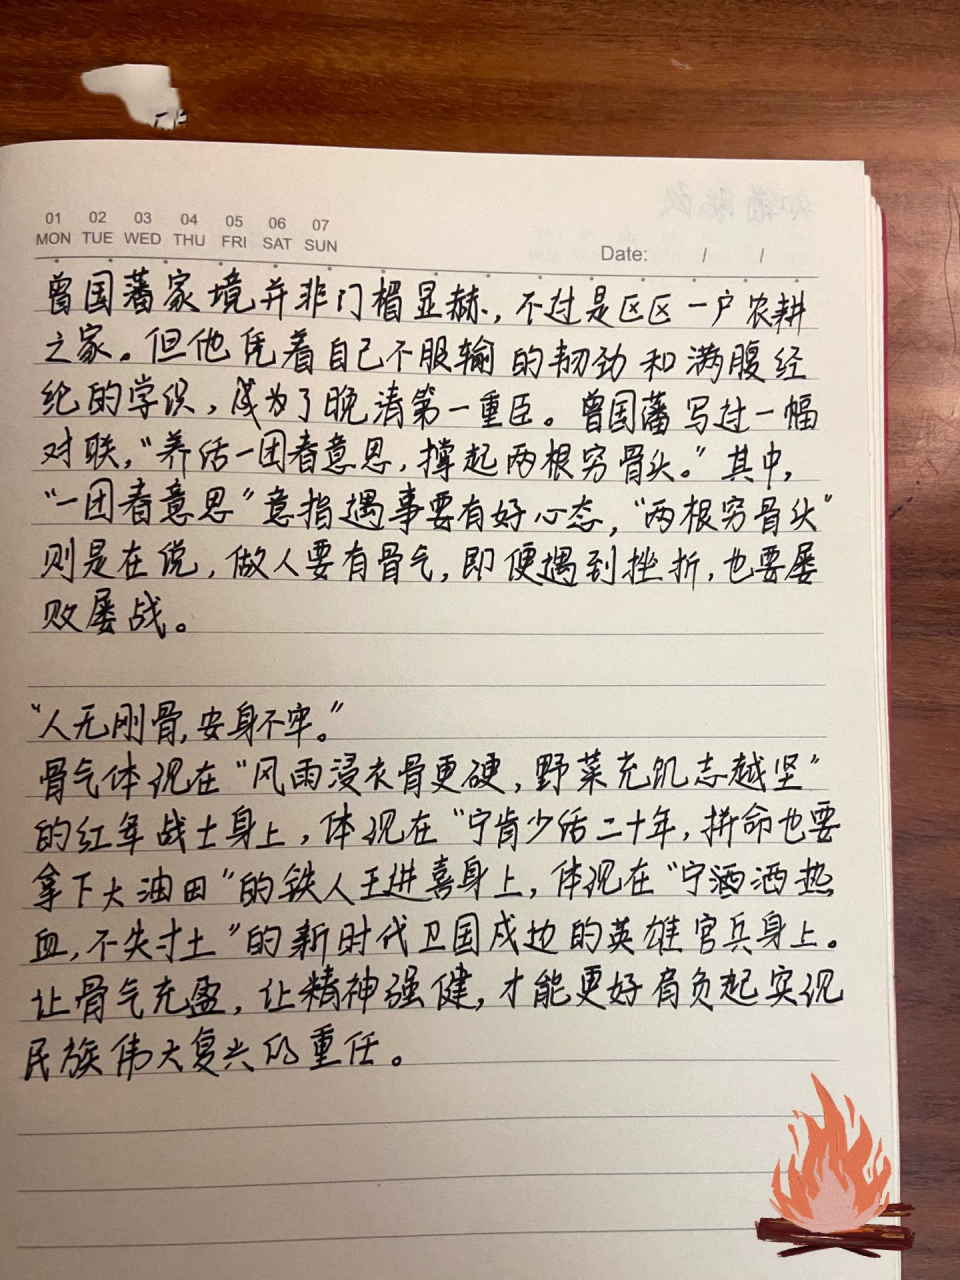 01 02 03 04 05 06 07
MON TUE WED THU FRI SAT SUN
Date: / /
曾国藩家境并非门楣显赫，不过是区区一户农耕
之家。但他凭着自己不服输的韧劲和满腹经
纶的学识，成为了晚清第一重臣。曾国藩写过一幅
对联，“养活一团春意思，撑起两根穷骨头。”其中，
“一团春意思”意指遇事要有好心态，“两根穷骨头”
则是在说，做人要有骨气，即便遇到挫折，也要屡
败屡战。
“人无刚骨，安身不牢。”
骨气体现在“风雨浸衣骨更硬，野菜充饥志越坚”
的红军战士身上，体现在“宁肯少活二十年，拼命也要
拿下大油田”的铁人王进喜身上，体现在“宁洒洒热
血，不失寸土”的新时代卫国戍边的英雄官兵身上。
让骨气充盈，让精神强健，才能更好肩负起实现
民族伟大复兴的重任。